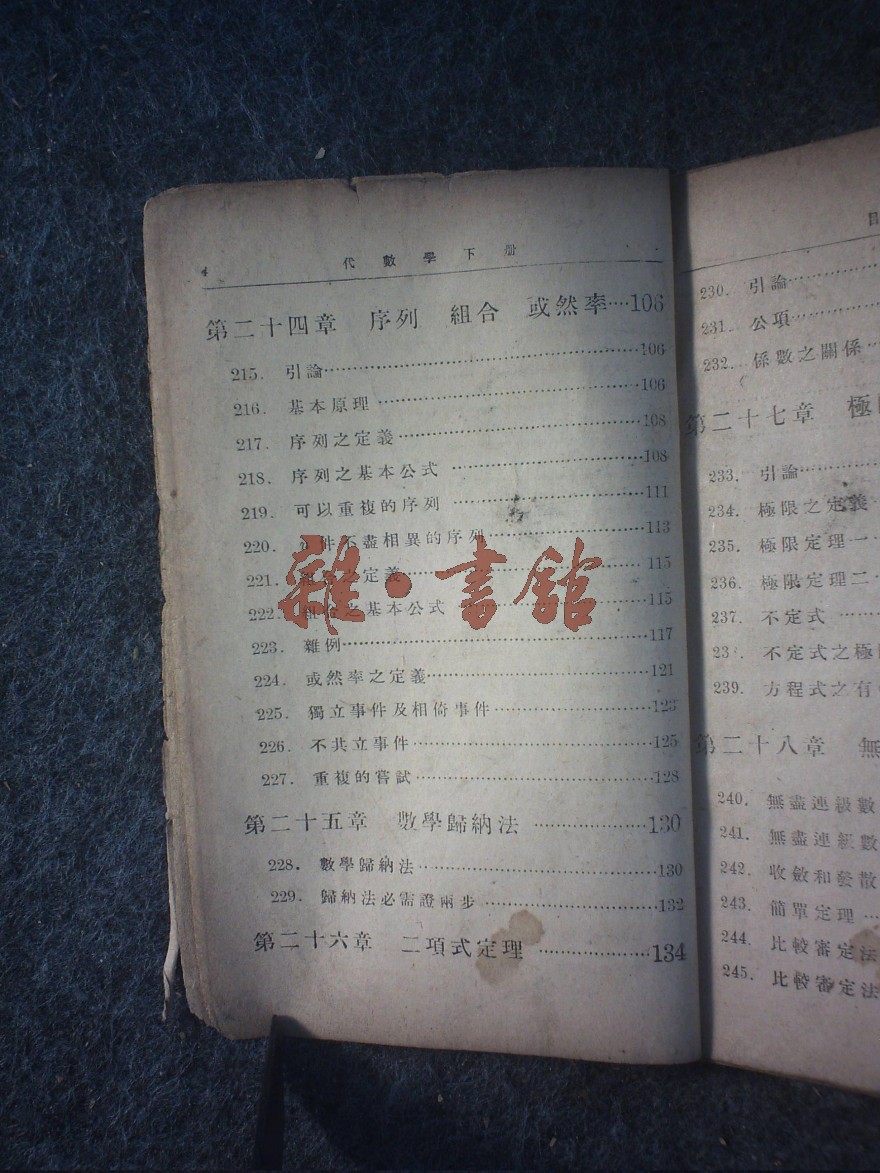 4 代數學下册
第二十四章 序列 組合 或然率…106
215. 引論…106
216. 基本原理…106
217. 序列之定義…108
218. 序列之基本公式…108
219. 可以重複的序列…111
220. 件不盡相異的序列…113
221. 之定義…115
222. 之基本公式…115
雜·書館
223. 雜例…117
224. 或然率之定義…121
225. 獨立事件及相倚事件…123
226. 不共立事件…125
227. 重複的嘗試…128
第二十五章 數學歸納法…130
228. 數學歸納法…130
229. 歸納法必需證兩步…132
第二十六章 二項式定理…134
目
230. 引論…
231. 公項…
232. 係數之關係…
第二十七章 極
233. 引論…
234. 極限之定義
235. 極限定理一
236. 極限定理二
237. 不定式…
23 . 不定式之極
239. 方程式之有
第二十八章 無
240. 無盡連級數
241. 無盡連級數
242. 收斂和發散
243. 簡單定理…
244. 比較審定法
245. 比較審定法